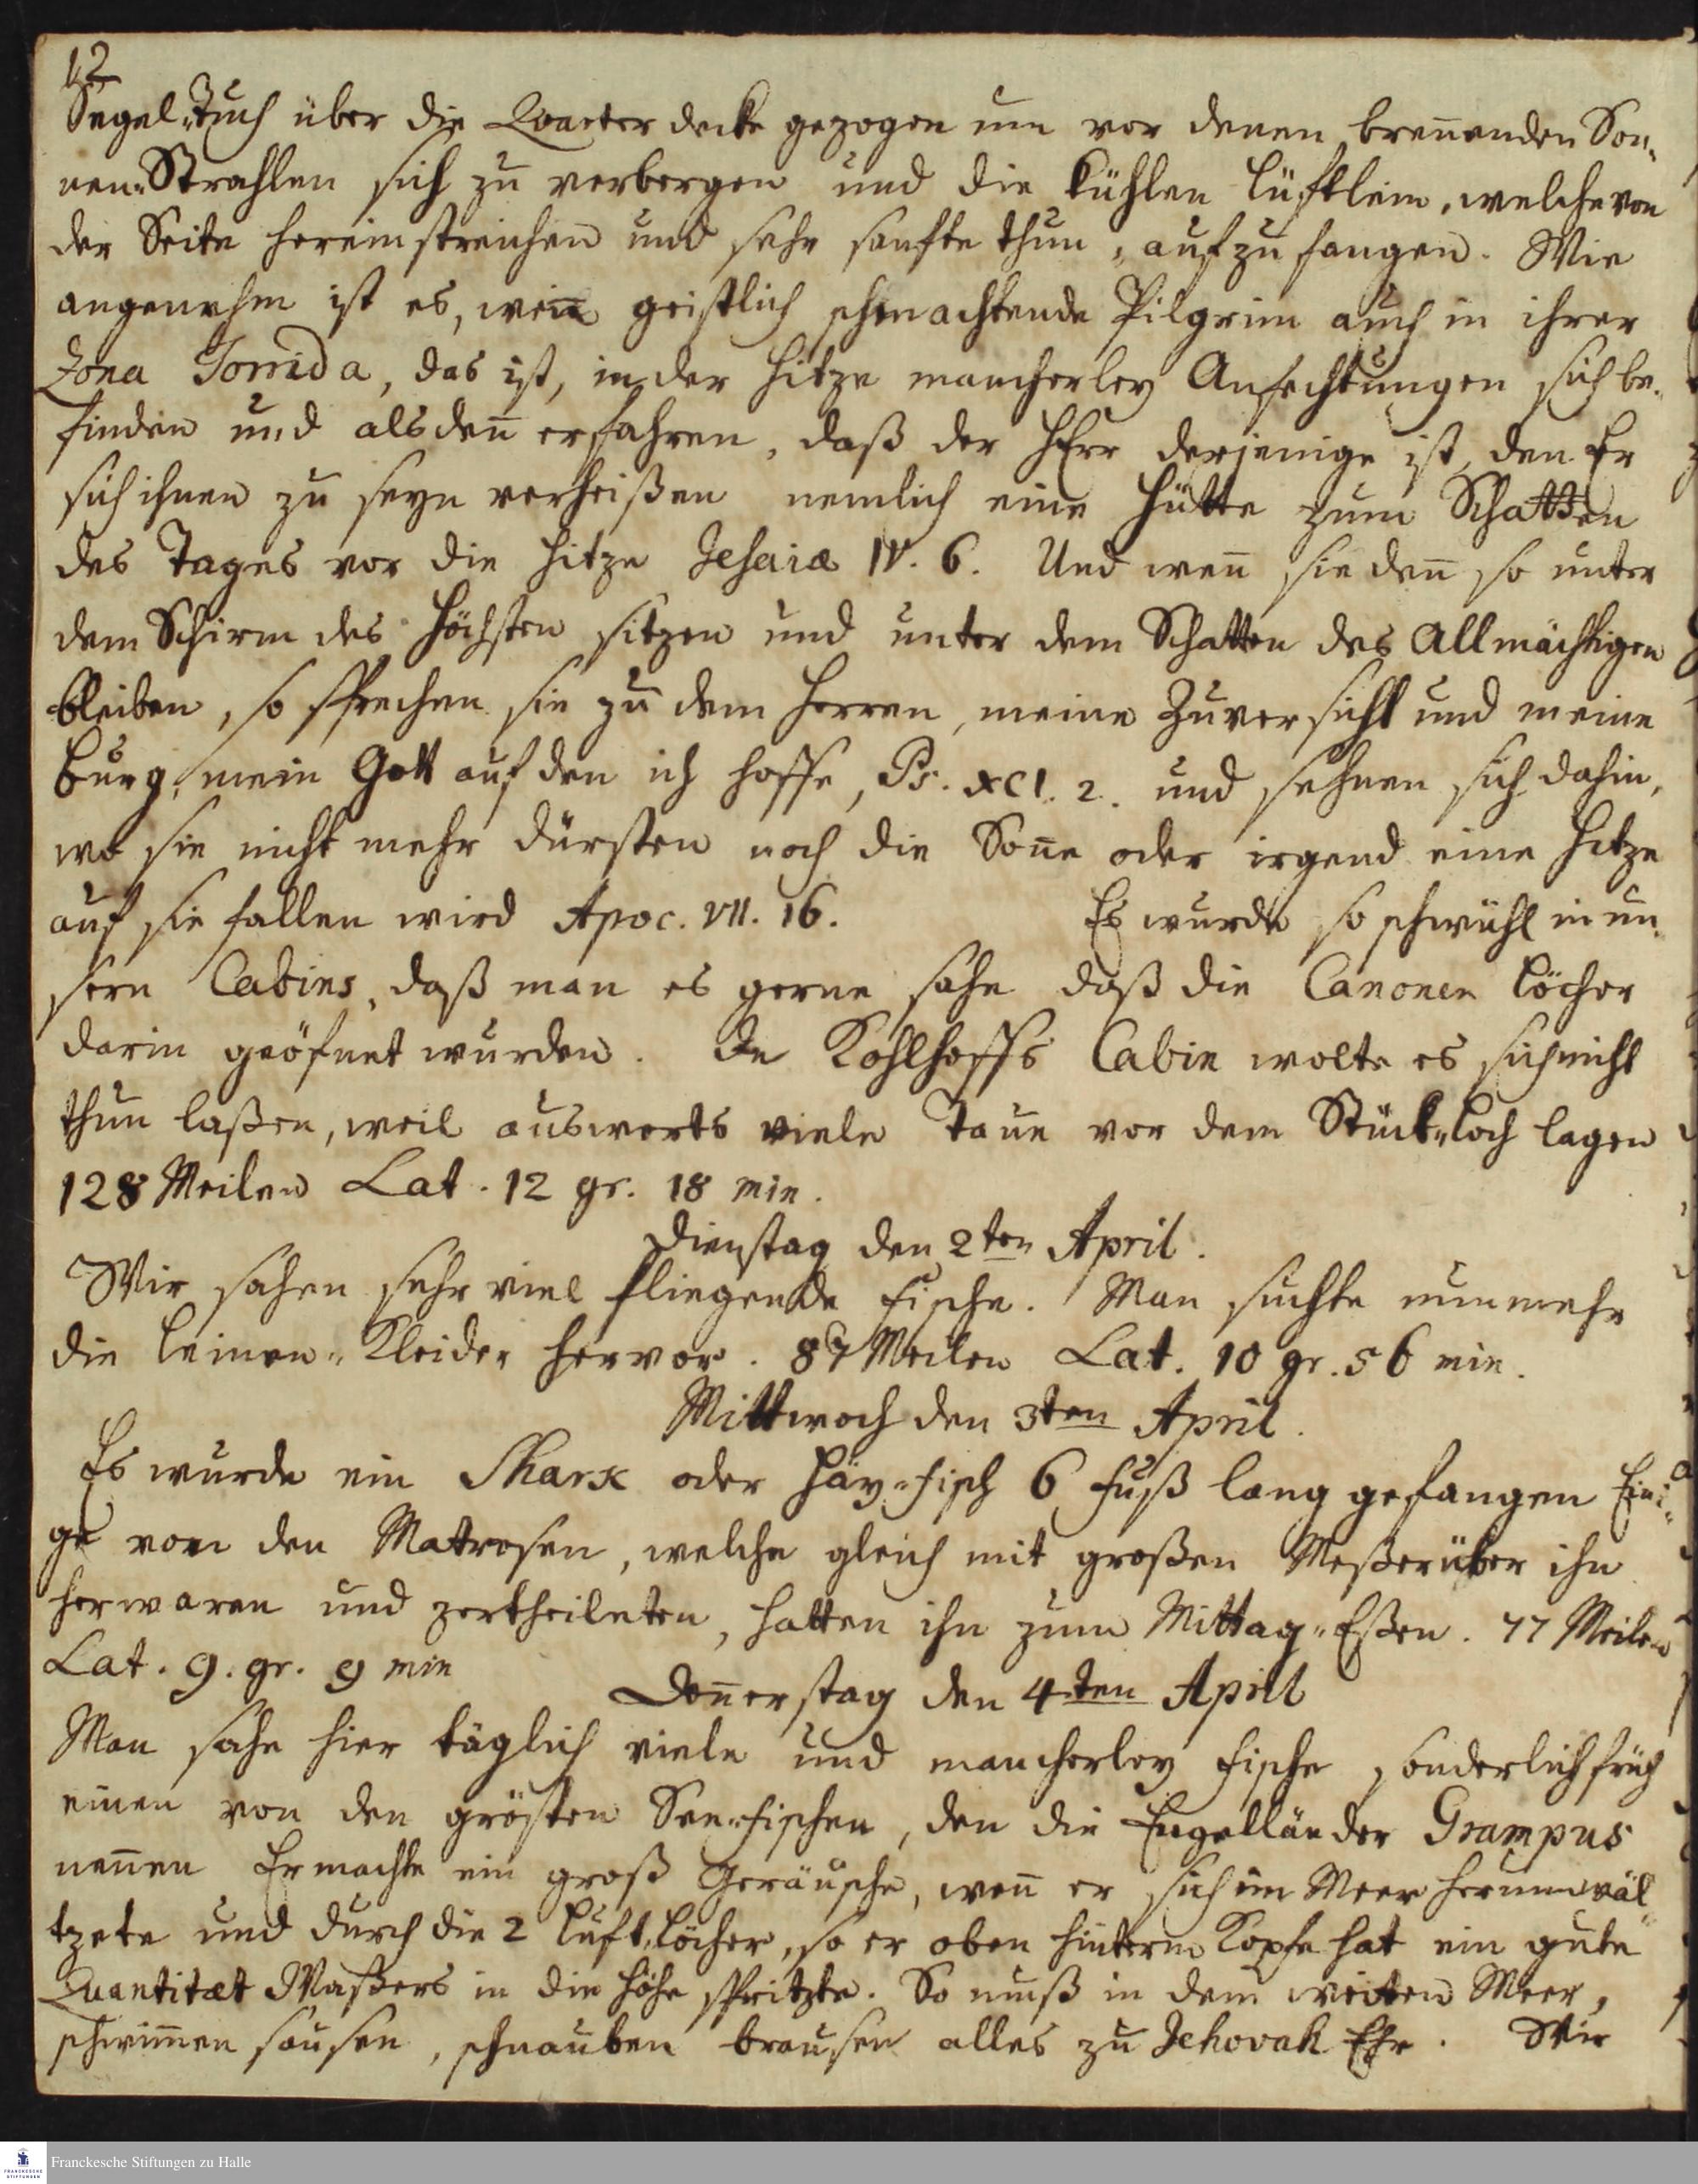 12
Segel-Tuch über die Quarter decke gezogen um vor denen breñenden Son-
nen-Strahlen sich zu verbergen und die kühlen Lüftlein, welche von
der Seite hereinstreichen und sehr sanfte thun, aufzufangen. Wie
angenehm ist es, weñ geistlich schmachtende Pilgrim auch in ihrer
Zona Torrida, das ist, in der Hitze mancherley Anfechtungen sich be-
finden und alsdeñ erfahren, daß der HErr derjenige ist, den Er
sich ihnen zu seyn verheißen nemlich eine Hütte zum Schatten
des Tages vor die Hitze Jesaiæ IV. 6. Und weñ sie deñ so unter
dem Schirm des Höchsten sitzen und unter dem Schatten des Allmächtigen
bleiben, so sprechen sie zu dem Herren, meine Zuversicht und meine
Burg, mein Gott auf den ich hoffe, Ps. XCI. 2. und sehnen sich dahin,
wo sie nicht mehr dürsten noch die Soñe oder irgend eine Hitze
auf sie fallen wird Apoc. VII. 16. Es wurde so schwühl in un-
sern Cabins, daß man es gerne sahe daß die Canonen Löcher
darin geöfnet wurden. In Kohlhoffs Cabin wolte es sich nicht
thun laßen, weil auswerts viele Taue vor dem Stück-Loch lagen
128 Meilen Lat. 12 gr. 18 min.
Dienstag den 2ten April.
Wir sahen sehr viel fliegende Fische. Man suchte nunmehr
die Leinen-Kleider hervor. 87 Meilen Lat. 10 gr. 56 min.
Mittwoch den 3ten April.
Es wurde ein Shark oder Häy-Fisch 6 Fuß lang gefangen Eini-
ge von den Matrosen, welche gleich mit großen Meßer über ihn
her waren und zertheileten, hatten ihn zum Mittag-Eßen. 77 Meilen
Lat. 9. gr. 9 min
Doñerstag den 4ten April
Man sahe hier täglich viele und mancherley Fische sonderlich früh
einen von den grösten See-Fischen, den die Engelländer Grampus
neñen Er machte ein groß Geräusche, weñ er sich im Meer herumwäl-
tzete und durch die 2 Luft-Löcher, so er oben hinterm Kopfe hat ein gute
Quantitæt Waßers in die Höhe spritzte. So muß in dem weiten Meer,
schwim̃en sausen, schnauben brausen alles zu Jehovah Ehr. Wir
Franckesche Stiftungen zu Halle